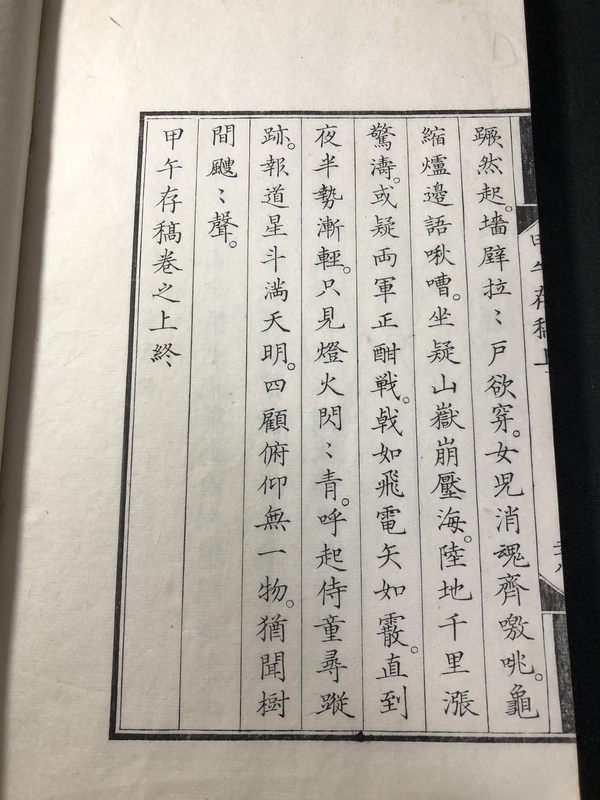 蹶然起。墻壁拉〻戸欲穿。女児消魂齊噭咷。龜
縮爐邉語啾嘈。坐疑山嶽崩壓海。陸地千里漲
驚濤。或疑両軍正酣戦。戟如飛電矢如霰。直到
夜半勢漸輕。只見燈火閃〻青。呼起侍童尋蹤
跡。報道星斗満天明。四顧俯仰無一物。猶聞樹
間颼〻聲。
甲午存稿巻之上終
甲午存稿上